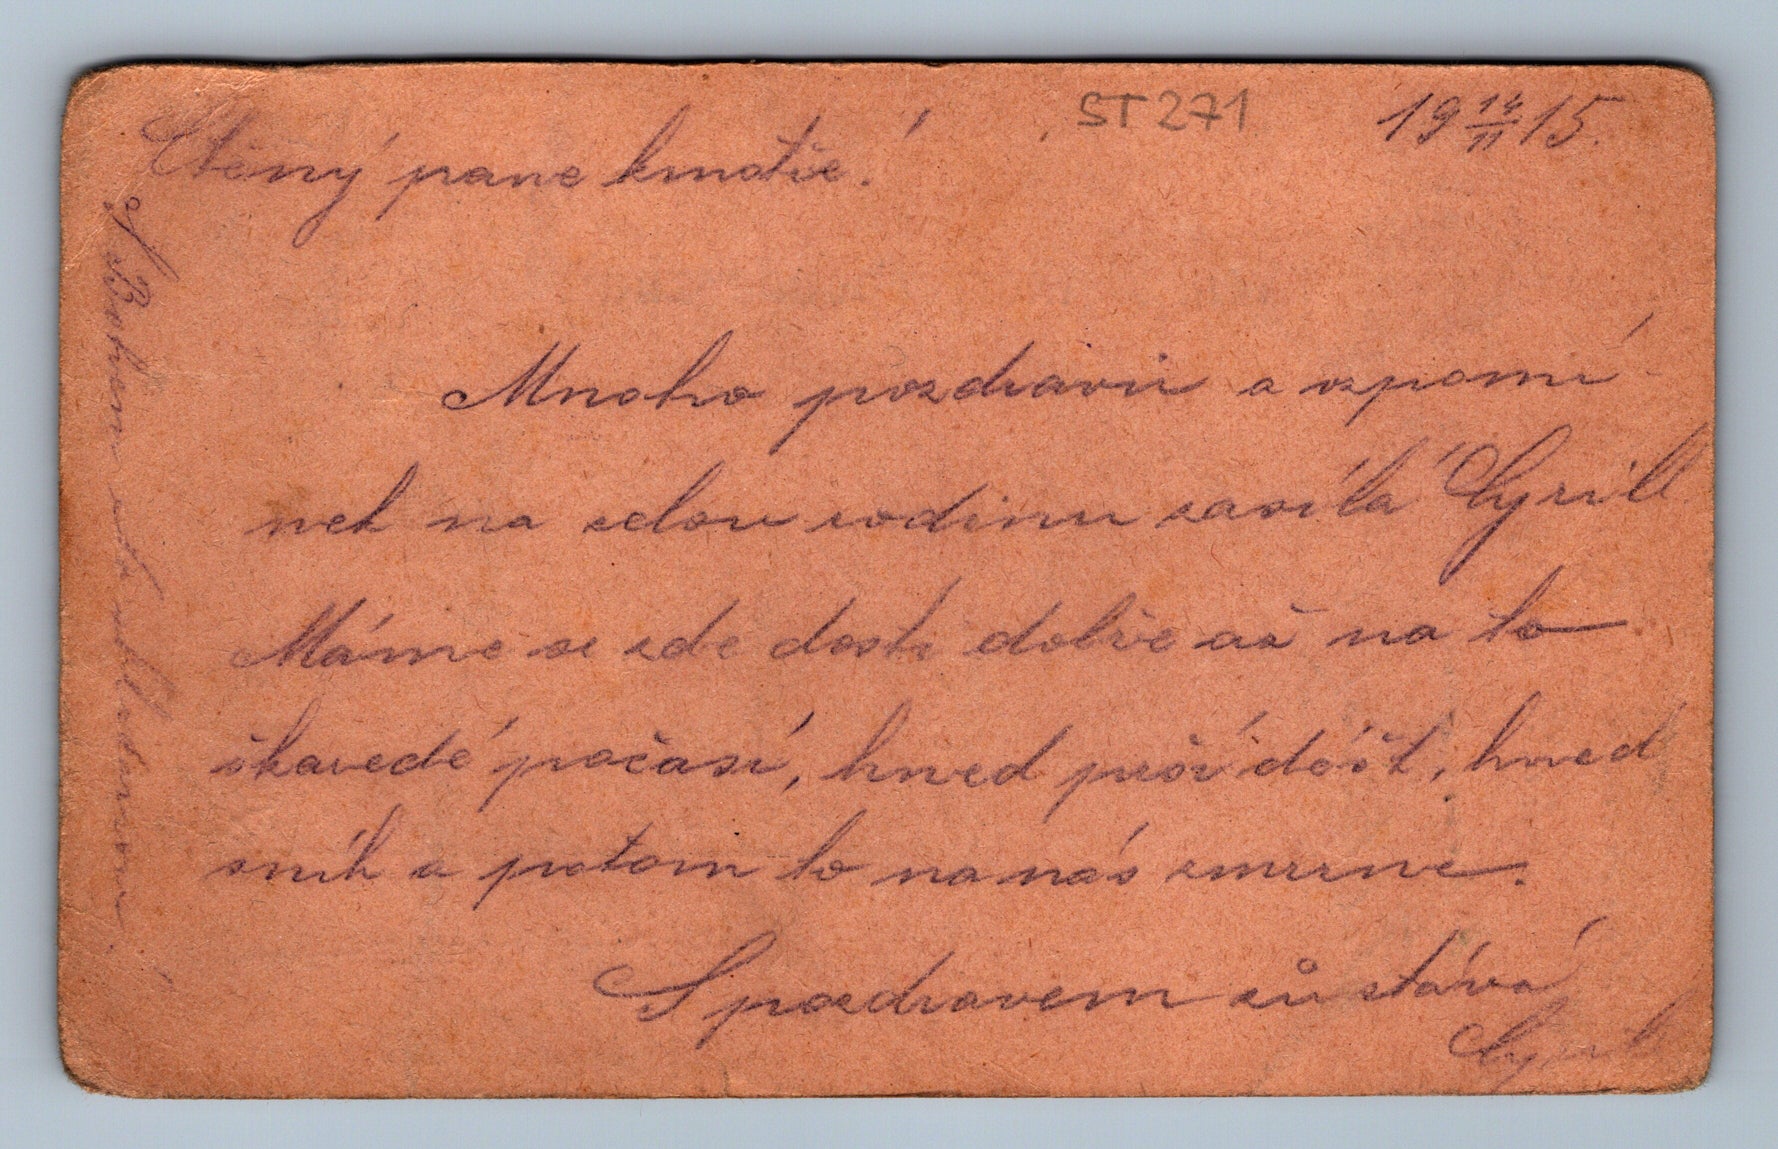 ST 271
19 14/11 15.
Ctěný pane kmotře!
Mnoho pozdravů a vzpomí-
nek na celou rodinu zasílá Cyrill
Máme se zde dosti dobře až na to
škaredé počasí, hned prší déšť, hned
sníh a potom to na nás zmrzne.
S pozdravem zůstává
Cyril
S Bohem